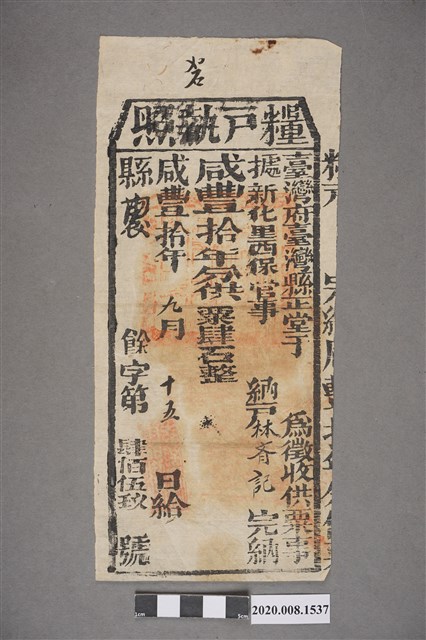 糧戶執照
臺灣府臺灣縣正堂 為徵收供粟事
據新化里西保管事 納戶林齊記完納
咸豐拾年分供粟肆石整
咸豐拾年九月十五日給
縣 餘字第肆佰伍 號
2020.008.1537
1cm
5cm